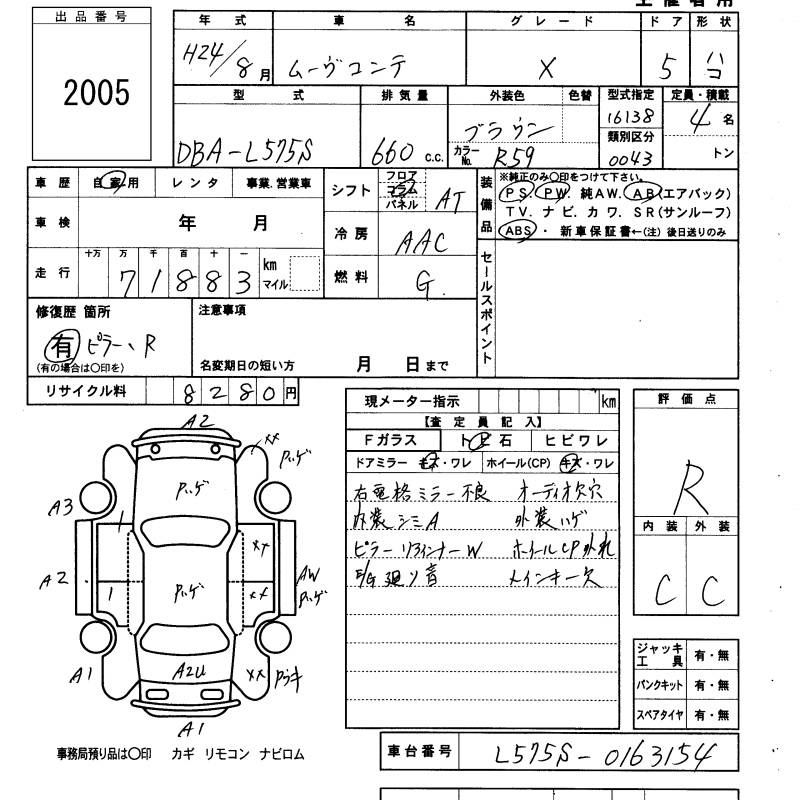 出品番号
2005
年式 車名 グレード ドア 形状
H24/8月 ムーヴコンテ X 5 ハコ
型式 排気量 外装色 色替 型式指定 定員・積載
DBA-L575S 660 c.c. ブラウン 16138 4名
カラーNo. R59 類別区分 0043 トン
車歴 自家用 レンタ 事業.営業車
シフト フロア コラム パネル AT
装備品 ※純正のみ〇印をつけて下さい。
PS. PW. 純AW. AB(エアバック)
TV. ナビ. カワ. SR(サンルーフ)
ABS・ 新車保証書←(注) 後日送りのみ
車検 年 月
冷房 AAC
走行 十万 万 千 百 十 一
71883 km マイル
燃料 G.
セールスポイント
修復歴 箇所
有 ピラー、R
(有の場合は〇印を)
注意事項
名変期日の短い方 月 日まで
リサイクル料 8280円
現メーター指示 km
【査定員記入】
Fガラス トビ石 ヒビワレ
ドアミラー キズ・ワレ ホイール(CP) キズ・ワレ
右電格ミラー不良 オーディオ欠穴
内装シミA 外装ハゲ
ピラーリフィンナーW ホイールCP外れ
E/G廻り音 メインキー欠
評価点
R
内装 外装
C C
A2
xx
ハゲ
ハゲ
A3
1
xx
A2
1
ハゲ
xx
AW
ハゲ
A1
A2U
xx
A1
ジャッキ工具 有・無
パンクキット 有・無
スペアタイヤ 有・無
事務局預り品は〇印 カギ リモコン ナビロム
車台番号 L575S-0163154